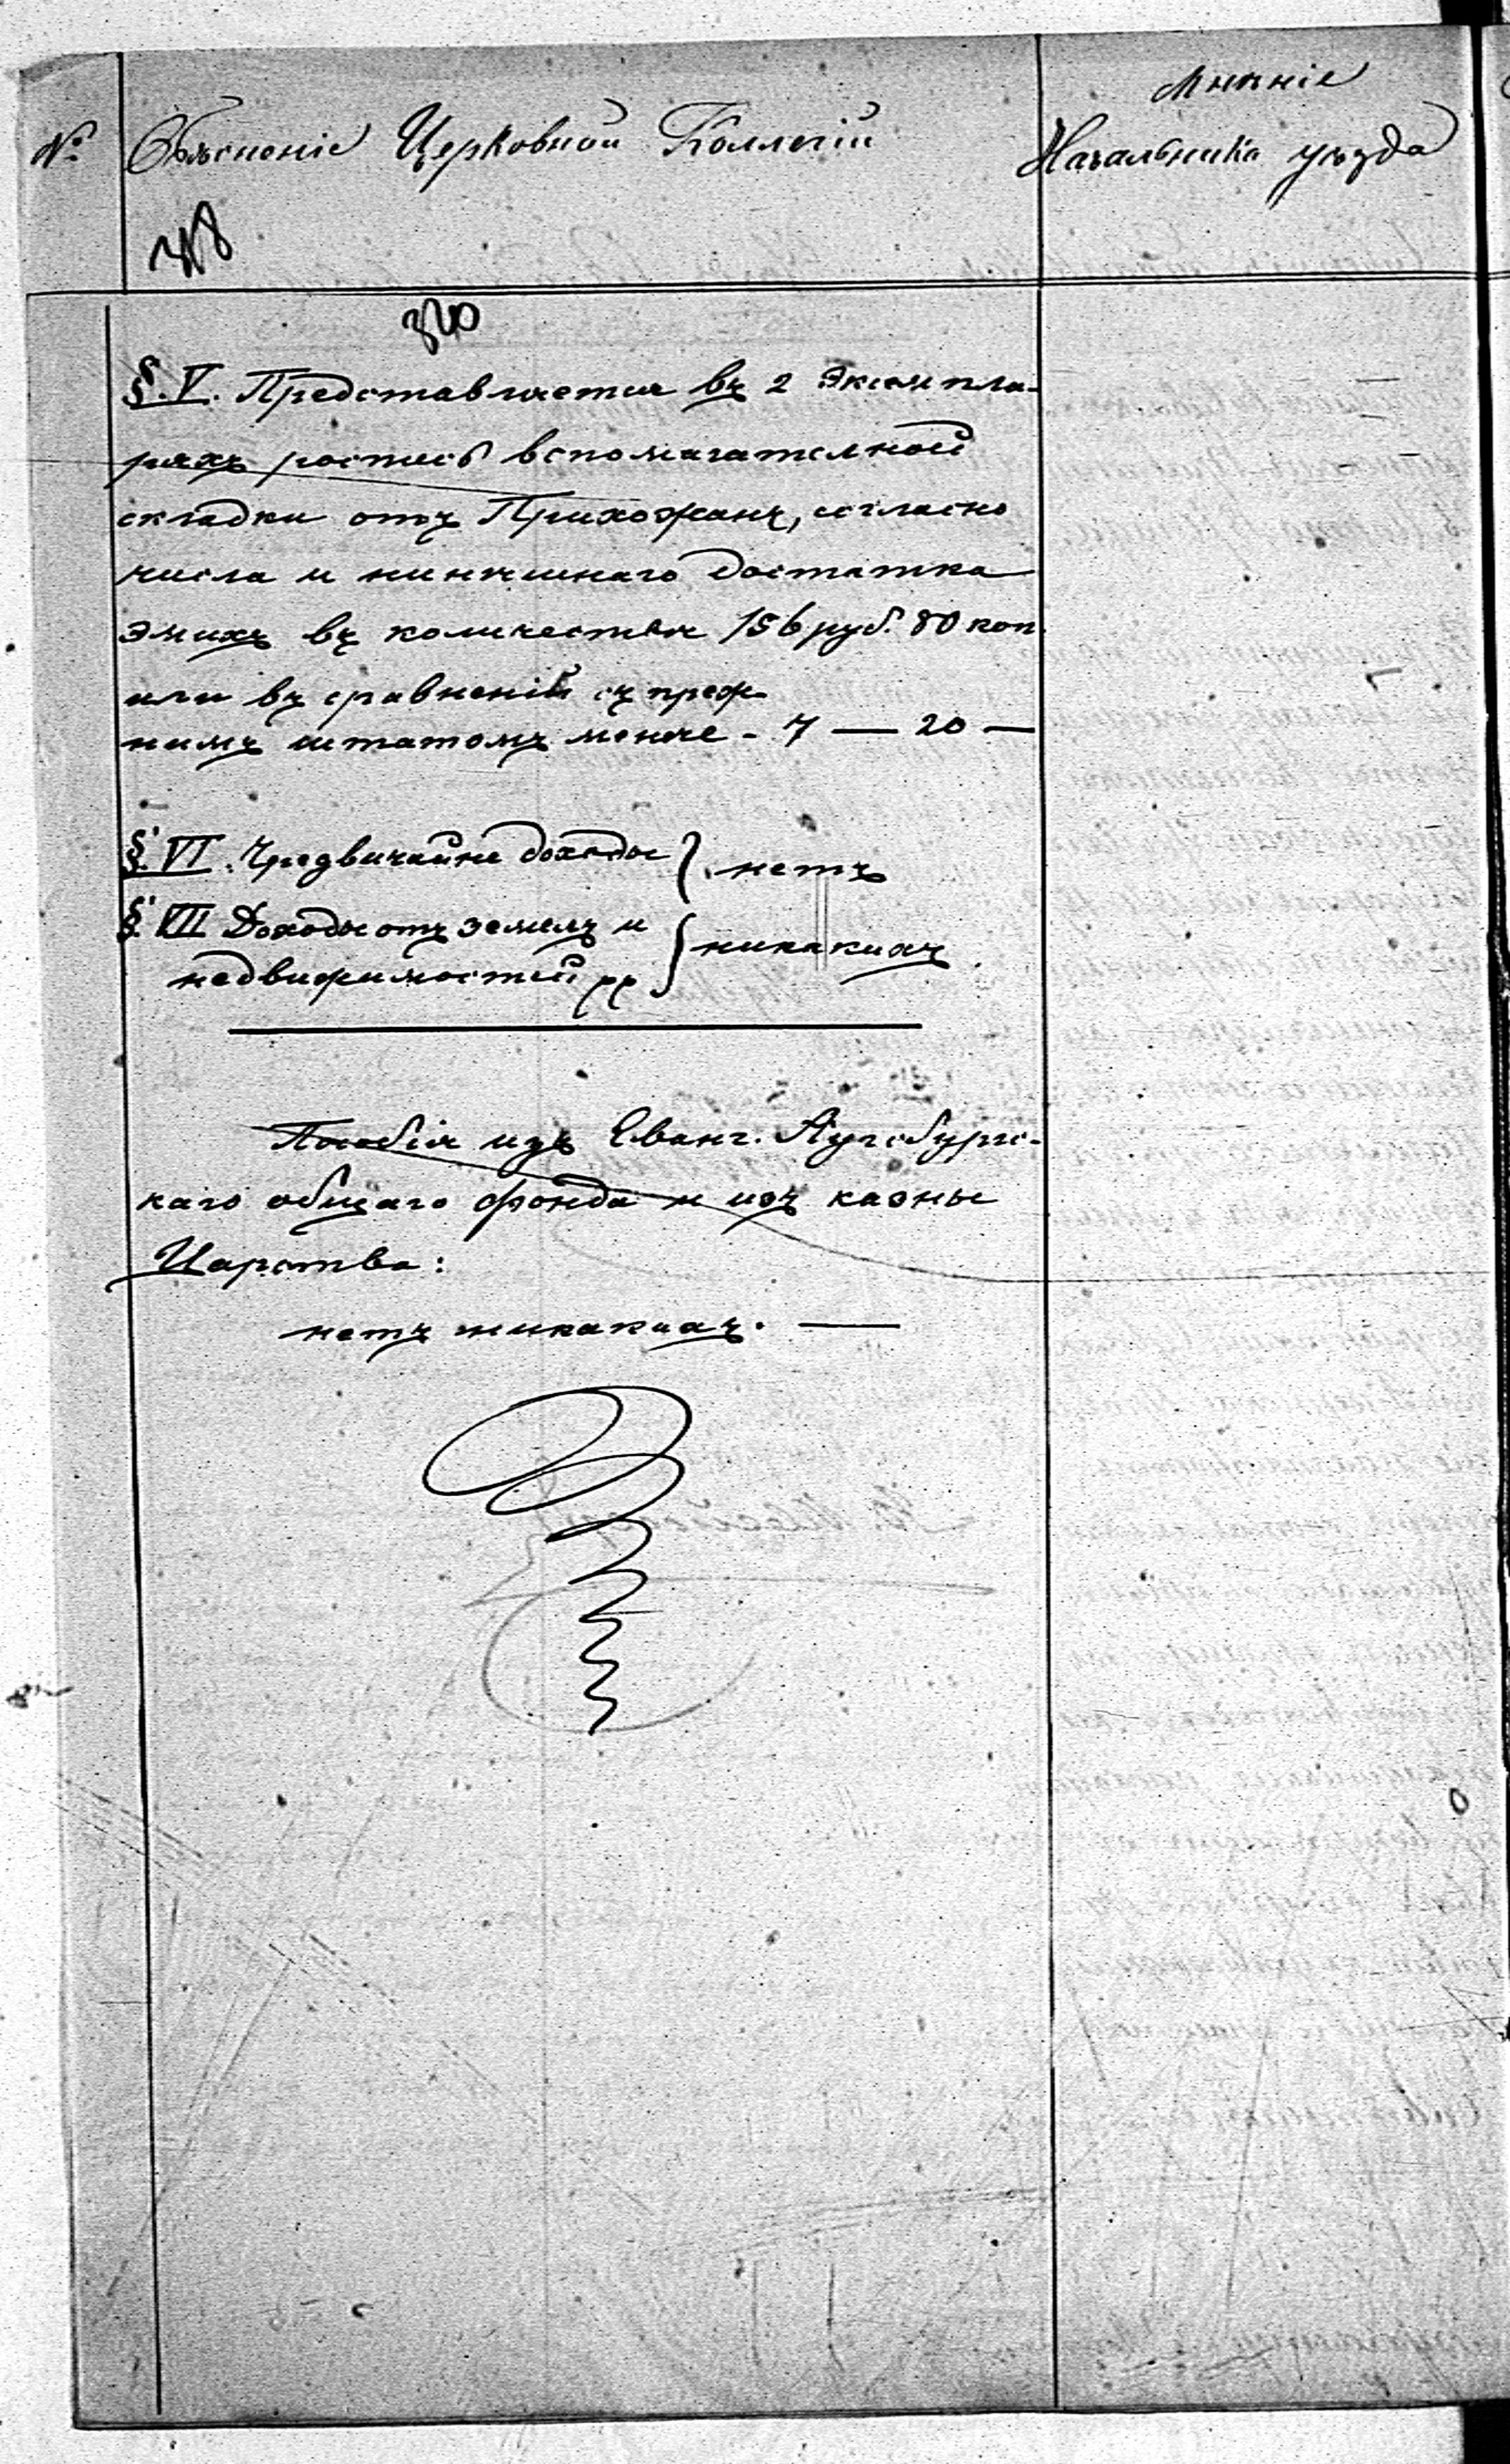 Мнѣніе
№ Объясненіе Церковной Коллегіи Начальника уѣзда
318
320
§. V. Представляется въ 2 Экземпля-
рахъ роспись вспомагательной
складки отъ Прихожанъ, согласно
числа и нинѣшнаго достатка
эмихъ въ количествѣ 156 руб. 80 коп
или въ сравненій съ преж
нимъ штатомъ менѣе - 7 — 20 —
§. VI. Чредвичайне доходы } нетъ
§. VII Доходы отъ земель и
недвижимостей рр } никакихъ
Пособія изъ Еванг. Аугсбургс-
каго общаго фонда и изъ казны
Царства:
нетъ никакихъ. —